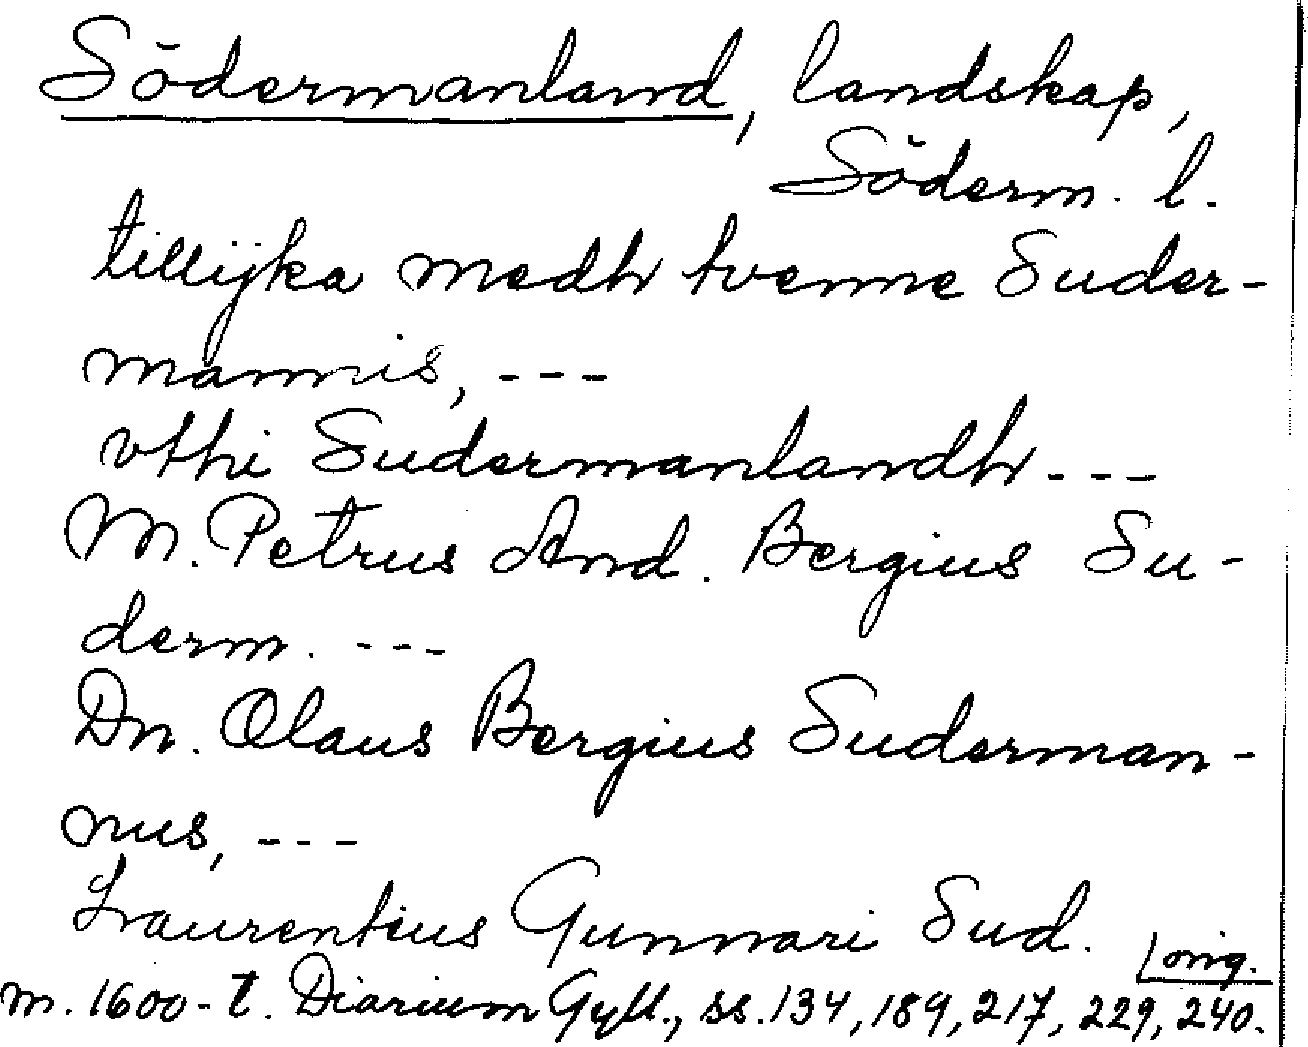 Södermanland, landskap,
Söderm. l.
tillijka medh tvenne Suder-
mannis, ---
vthi Sudermanlandh ---
M. Petrus And. Bergius Su-
derm. ---
Dn. Olaus Bergius Suderman-
nus, ---
Laurentius Gunnari Sud.
orig.
m. 1600-t. Diarium Gyll., ss. 134, 189, 217, 229, 240.